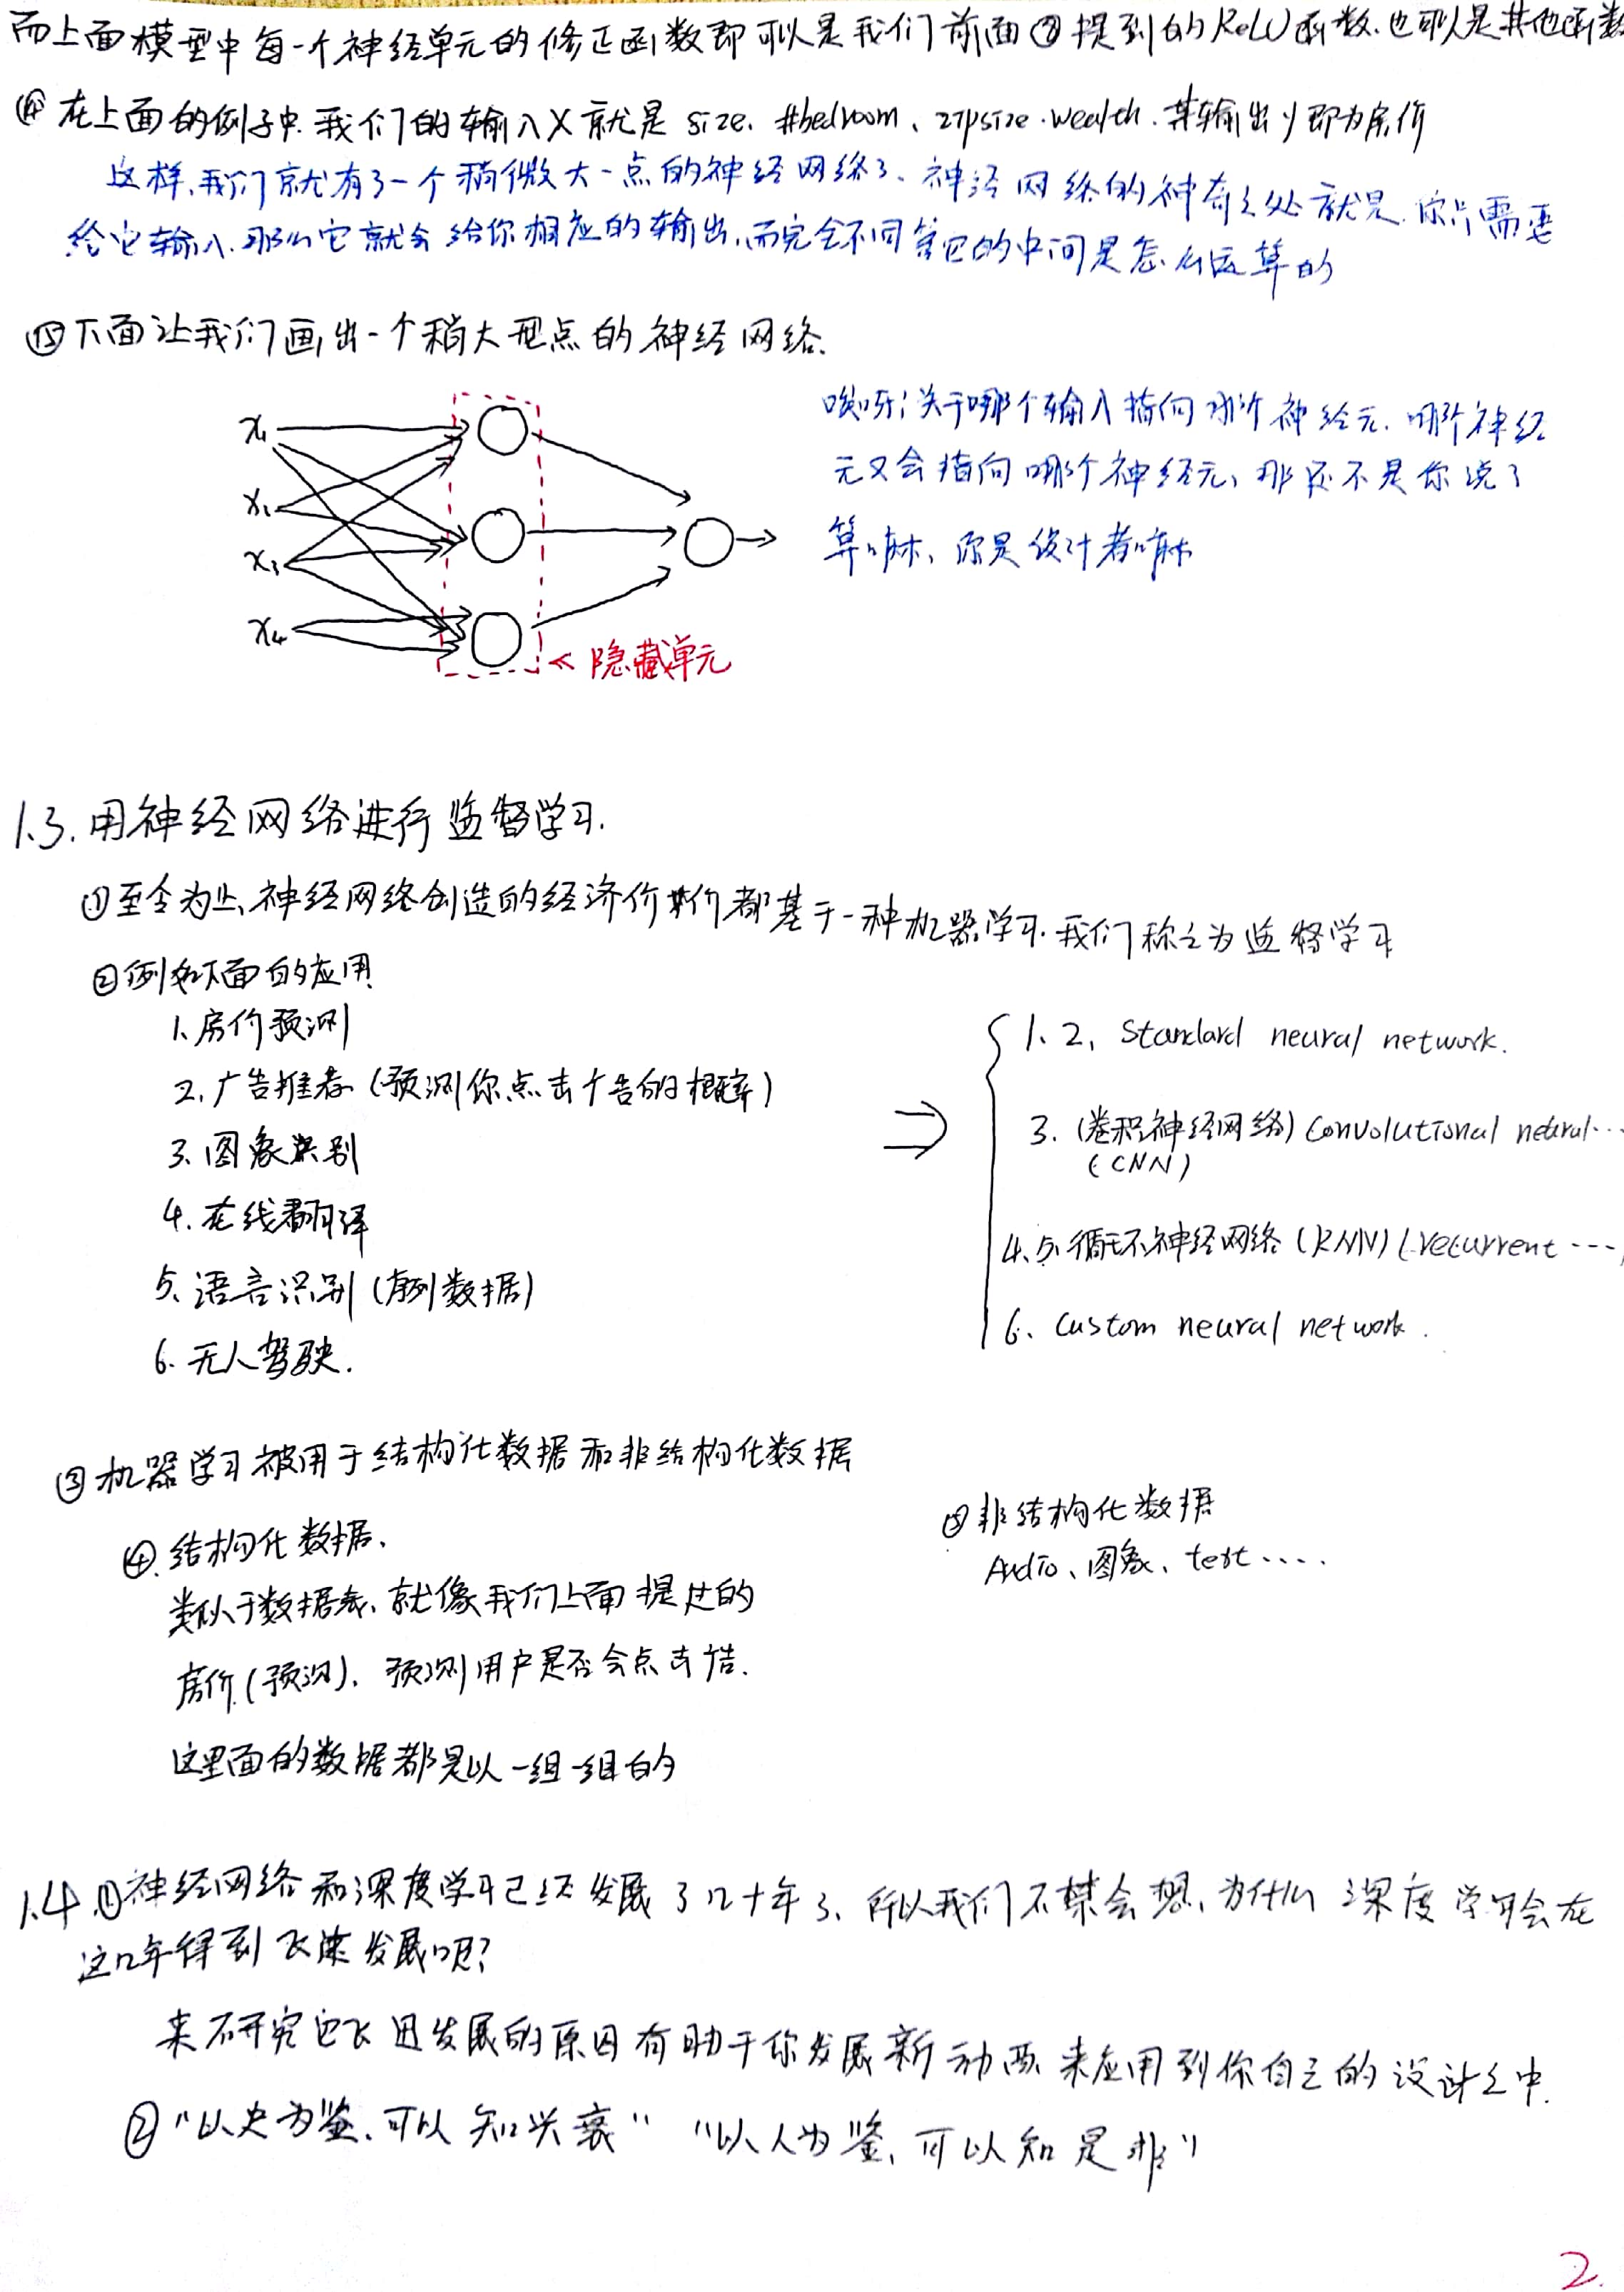 而上面模型中每一个神经单元的修正函数即可以是我们前面③提到的ReLU函数.也可以是其他函数
④ 在上面的例子中.我们的输入X就是 size、#bedroom、zipsize.wealth.其输出y即为房价
这样,我们就有了一个稍微大一点的神经网络了、神经网络的神奇之处就是.你只需要
给它输入.那么它就会给你相应的输出,而完全不同管它的中间是怎么运算的
⑤下面让我们画出一个稍大型点的神经网络.
x₁
x₂
x₃
x₄
隐藏单元
哎呀;关于哪个输入指向哪个神经元.哪个神经
元又会指向哪个神经元、那还不是你说了
算嘛、你是设计者嘛
1.3.用神经网络进行监督学习.
①至今为止、神经网络创造的经济价价都基于一种机器学习.我们称之为监督学习
②例如下面的应用.
1、房价预测
2、广告推荐(预测你点击广告的概率)
3.图象识别
4.在线翻译
5、语音识别(序列数据)
6.无人驾驶.
⇒
1、2、Standard neural network.
3.(卷积神经网络)Convolutional neural…
(CNN)
4、5、循环神经网络(RNN)(recurrent ---
6、Custom neural network.
③机器学习被用于结构化数据和非结构化数据
④.结构化数据、
类似于数据表、就像我们上面提过的
房价(预测)、预测用户是否会点击广告.
这里面的数据都是以一组一组的
⑤非结构化数据
Audio、图象、text ....
1.4.①神经网络和深度学习已经发展了几十年了、所以我们不禁会想、为什么深度学习会在
这几年得到飞速发展呢?
来研究它飞迅发展的原因有助于你发展新动西来应用到你自己的设计之中.
②"以史为鉴、可以知兴衰" "以人为鉴、可以知是非"
2.